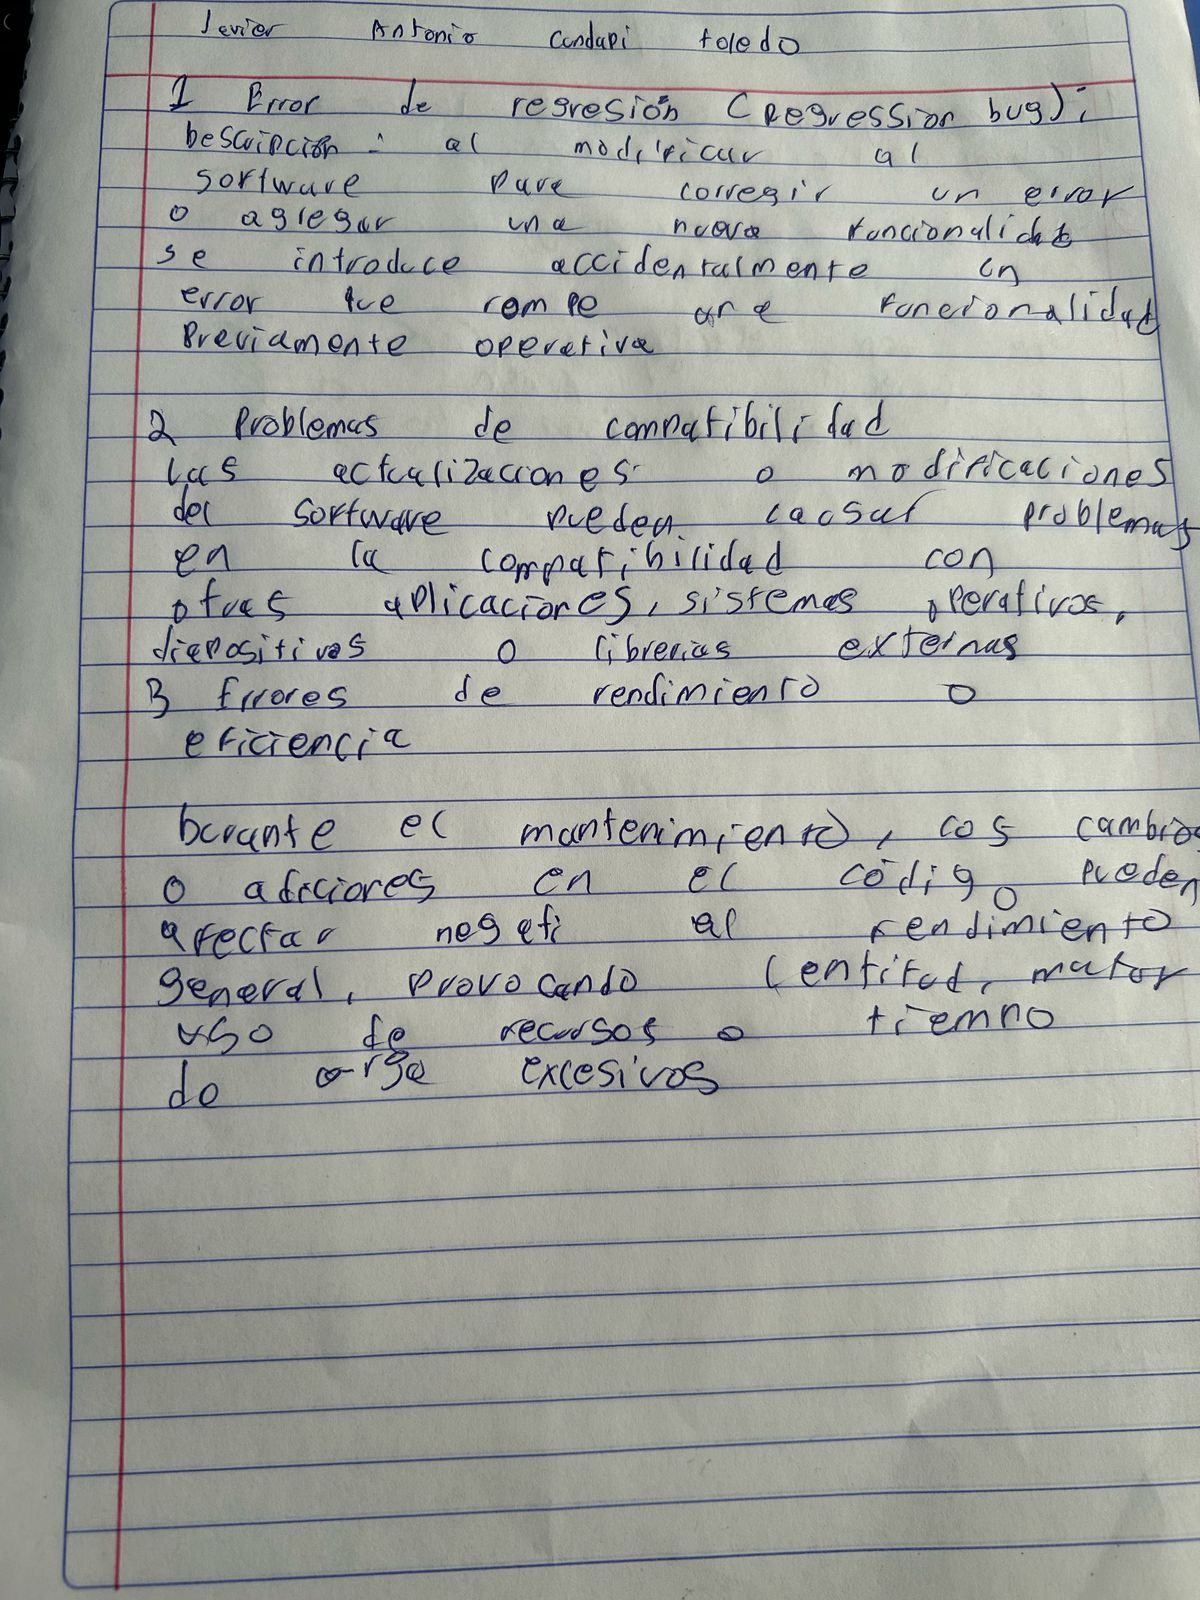 Javier Antonio Cundapi toledo
1 Error de regresión (Regression bug):
Descripción: al modificar al
software para corregir un error
o agregar una nueva funcionalidad
se introduce accidentalmente un
error que rompe una funcionalidad
Previamente operativa
2 Problemas de compatibilidad
Las actualizaciones o modificaciones
del software pueden causar problemas
en la compatibilidad con
otras aplicaciones, sistemas operativos,
dispositivos o librerias externas
3 Errores de rendimiento o
eficiencia
Durante el mantenimiento, los cambios
o adiciones en el código pueden
afectar negati al rendimiento
general, provocando lentitud, mayor
uso de recursos o tiempo
de carga excesivos